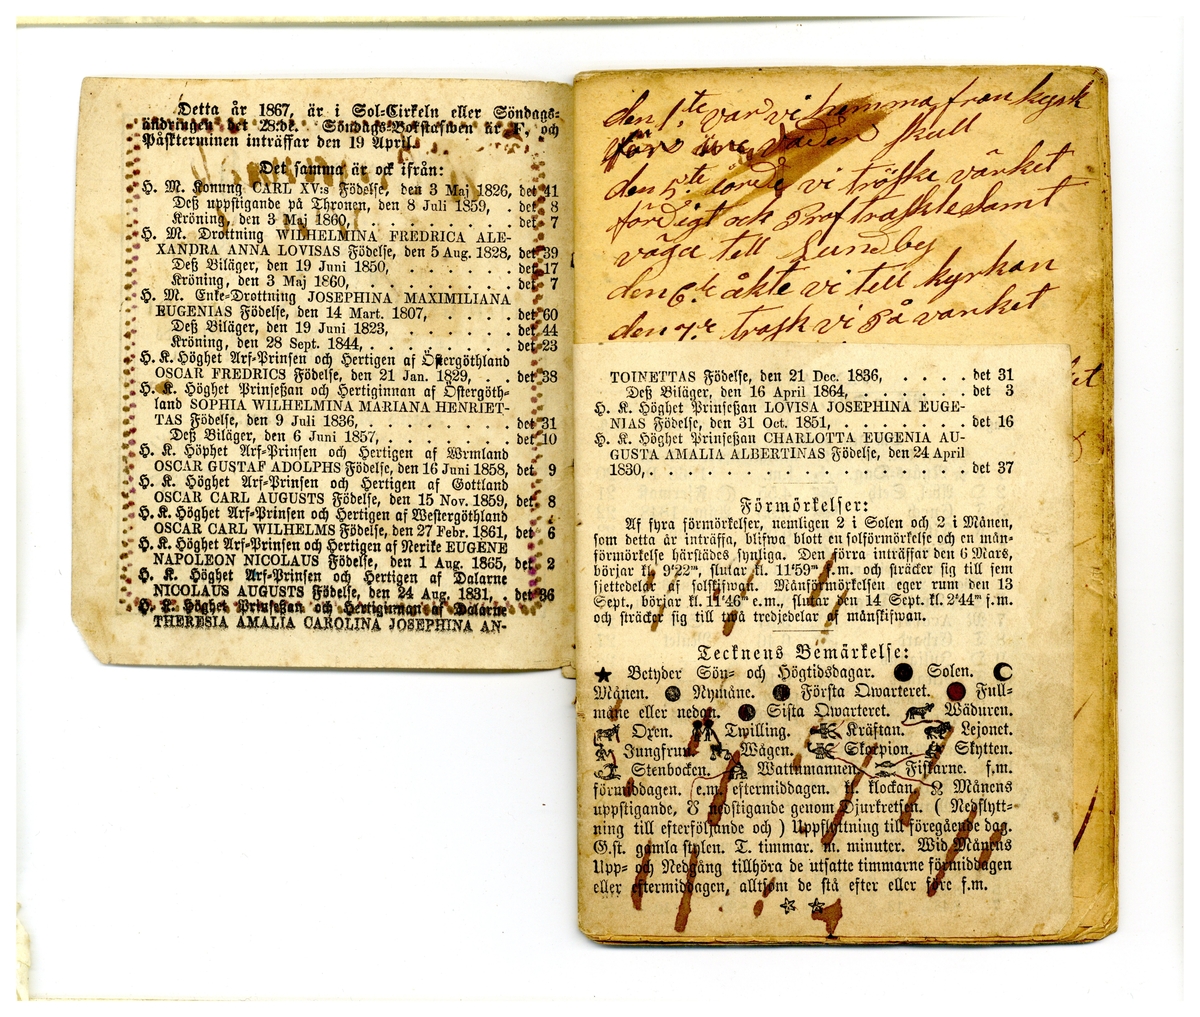 Detta år 1867, är i Sol-Cirkeln eller Söndags-
ändringen det 28:de. Söndags-Bokstafwen är F, och
Påsktterminen inträffar den 19 April.
Det samma är ock ifrån:
H. M. Konung CARL XV:s Födelse, den 3 Maj 1826, det 41
Deß uppstigande på Thronen, den 8 Juli 1859, . det 8
Kröning, den 3 Maj 1860, . . . . . . . . . det 7
H. M. Drottning WILHELMINA FREDRICA ALE-
XANDRA ANNA LOVISAS Födelse, den 5 Aug. 1828, det 39
Deß Biläger, den 19 Juni 1850, . . . . . . . det 17
Kröning, den 3 Maj 1860, . . . . . . . . . det 7
H. M. Enke-Drottning JOSEPHINA MAXIMILIANA
EUGENIAS Födelse, den 14 Mart. 1807, . . . . . det 60
Deß Biläger, den 19 Juni 1823, . . . . . . . det 44
Kröning, den 28 Sept. 1844, . . . . . . . . det 23
H. K. Höghet Arf-Prinsen och Hertigen af Östergöthland
OSCAR FREDRICS Födelse, den 21 Jan. 1829, . . det 38
H. K. Höghet Prinseßan och Hertiginnan af Östergöth-
land SOPHIA WILHELMINA MARIANA HENRIET-
TAS Födelse, den 9 Juli 1836, . . . . . . . . det 31
Deß Biläger, den 6 Juni 1857, . . . . . . . det 10
H. K. Höphet Arf-Prinsen och Hertigen af Wrmland
OSCAR GUSTAF ADOLPHS Födelse, den 16 Juni 1858, det 9
H. K. Höghet Arf-Prinsen och Hertigen af Gottland
OSCAR CARL AUGUSTS Födelse, den 15 Nov. 1859, det 8
H. K. Höghet Arf-Prinsen och Hertigen af Westergöthland
OSCAR CARL WILHELMS Födelse, den 27 Febr. 1861, det 6
H. K. Höghet Arf-Prinsen och Hertigen af Nerike EUGENE
NAPOLEON NICOLAUS Födelse, den 1 Aug. 1865, det 2
H. K. Höghet Arf-Prinsen och Hertigen af Dalarne
NICOLAUS AUGUSTS Födelse, den 24 Aug. 1831, . det 36
H. K. Höghet Prinseßan och Hertiginnan af Dalarne
THERESIA AMALIA CAROLINA JOSEPHINA AN-
den 1:te var vi hemma från kyrk
för skull
den 5:te vi tröske värket
färdigt och Prof traskte samt
väga till Lundby
den 6:te åkte vi till kyrkan
den 7:e trask vi På värket
TOINETTAS Födelse, den 21 Dec. 1836, . . . . . det 31
Deß Biläger, den 16 April 1864, . . . . . . det 3
H. K. Höghet Prinseßan LOVISA JOSEPHINA EUGE-
NIAS Födelse, den 31 Oct. 1851, . . . . . . . det 16
H. K. Höghet Prinseßan CHARLOTTA EUGENIA AU-
GUSTA AMALIA ALBERTINAS Födelse, den 24 April
1830, . . . . . . . . . . . . . . . . . . det 37
Förmörkelser:
Af fyra förmörkelser, nemligen 2 i Solen och 2 i Månen,
som detta år inträffa, blifwa blott en solförmörkelse och en mån-
förmörkelse härstädes synliga. Den förra inträffar den 6 Mars,
börjar kl. 9'22m, slutar kl. 11'59m f.m. och sträcker sig till fem
sjettedelar af solskifwan. Månförmörkelsen eger rum den 13
Sept., börjar kl. 11'46m e.m., slutar den 14 Sept. kl. 2'44m f.m.
och sträcker sig till två tredjedelar af månskifwan.
Tecknens Bemärkelse:
★ Betyder Sön- och Högtidsdagar. ● Solen. ☾
Månen. Nymåne. Första Qwarteret. Full-
måne eller nedan. Sista Qwarteret. Wäduren.
Oxen. Twilling. Kräftan. Lejonet.
Jungfrun. Wågen. Skorpion. Skytten.
Stenbocken. Wattumannen. Fiskarne. f.m.
förmiddagen. e.m. eftermiddagen. kl. klockan. ☊ Månens
uppstigande, ☋ nedstigande genom Djurkretsen. ( Nedflytt-
ning till efterföljande och ) Uppflyttning till föregående dag.
G.st. gamla stylen. T. timmar. m. minuter. Wid Månens
Upp- och Nedgång tillhöra de utsatte timmarne förmiddagen
eller eftermiddagen, alltsom de stå efter eller före f.m.